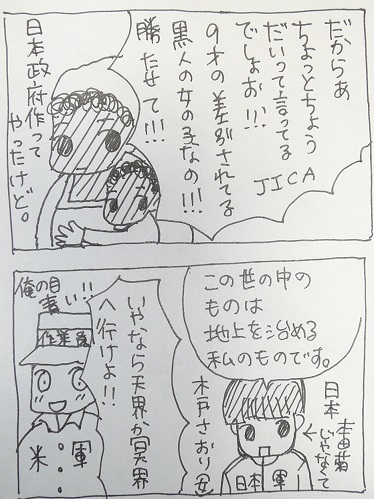 だからあ
ちょっとちょう
だいって言ってる
でしょお!!!
JICA
9才の差別されてる
黒人の女の子なの!!!
勝たせて!!!
日本政府作って
やったけど。
この世の中の
ものは
地上を治める
私のものです。
日本
本田菊
じゃなくて
木戸さおり
日本軍
いやなら天界か冥界
へ行けよ!!
俺の目
青い!!
作業員
米軍